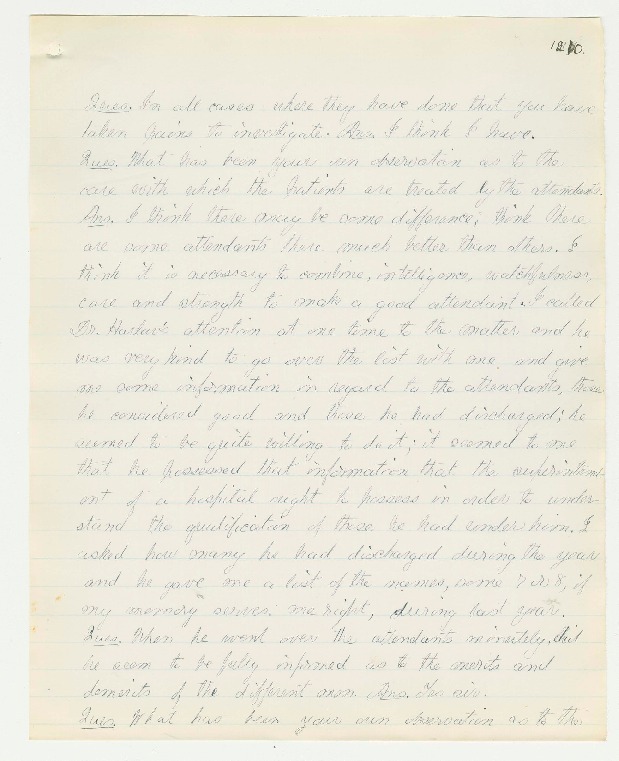 Ques. In all cases where they have done that you have
taken pains to investigate. Ans. I think I have.
Ques. What has been your own observation as to the
care with which the patients are treated by the attendants.
Ans. I think there may be some difference; think there
are some attendants there much better than others. I
think it is necessary to combine, intelligence, watchfulness,
care and strength to make a good attendant. I called
Dr. attention at one time to the matter and he
was very kind to go over the list with me, and give
me some information in regard to the attendants, those
he considered good and those he had discharged; he
seemed to be quite willing to do it; it seemed to me
that he possessed that information that the superintend-
ent of a hospital ought to possess in order to under-
stand the qualification of those he had under him. I
asked how many he had discharged during the year
and he gave me a list of the names, some 7 or 8, if
my memory serves me right, during last year.
Ques. When he went over the attendants minutely, did
he seem to be fully informed as to the merits and
demerits of the different men. Ans. Yes sir.
Ques. What has been your own observation as to the